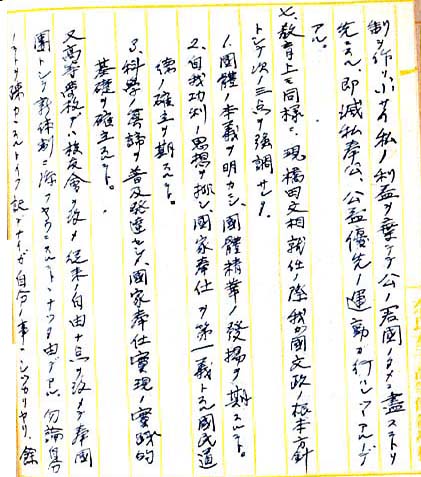 制ヲ作リ、小サイ私ノ利益ヲ棄テテ公ノ君国ノタメ盡ストイフ
先ヅ、即滅私奉公、公益優先ノ運動ガ行ハレツツアルノデ
アル。
七、教育上モ同様ニ、現橋田文相就任ノ際我ガ國文政ノ根本方針
トシテ次ノ三点ヲ強調サレタ。
1. 國體ノ本義ヲ明カシ、國體精華ノ發揚ヲ期スルコト。
2. 自我功利ノ思想ヲ排シ、國家奉仕ヲ第一義トスル國民道
徳ノ確立ヲ期スルコト。
3. 科学ノ眞諦ヲ普及発達セシメ、國家奉仕実現ノ実践的
基礎ヲ確立スルコト。
又高等学校デハ校友会ヲ改メ従来ノ自由ナ点ヲ改メテ奉國
團トシテ新体制ニ添フヤウスルコトニナツタ由デアル。勿論自分
ノコトヲ疎カニスルトイフ訳デナイガ自分ノ事ニシツカリヤリ、餘